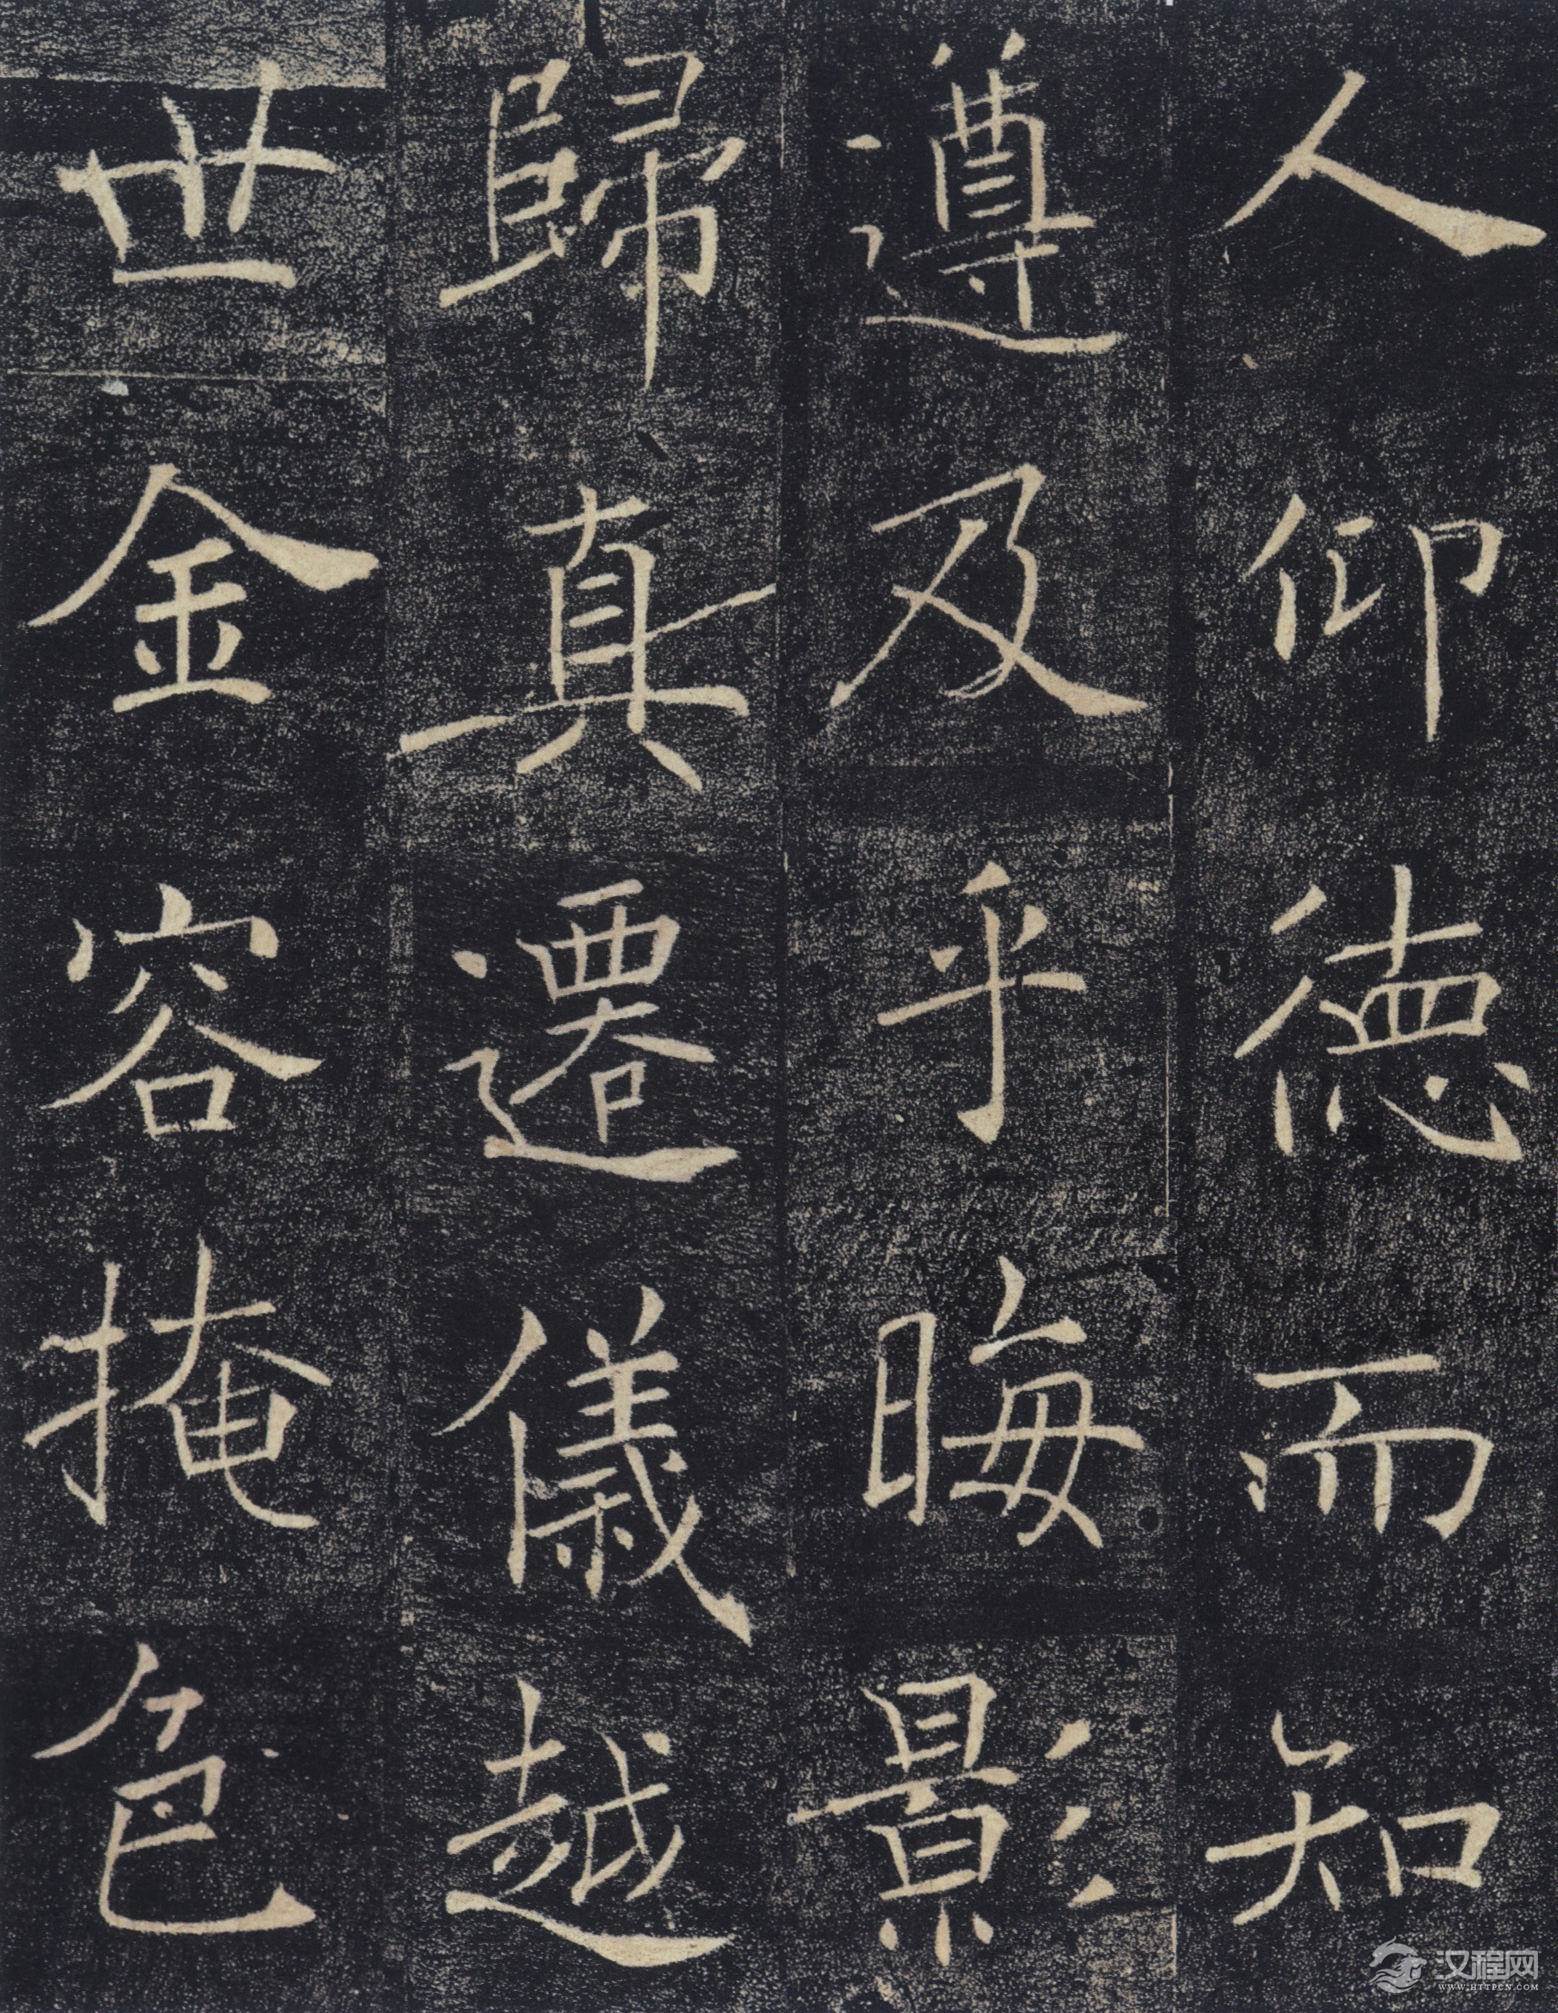 人仰德而知
遵及乎晦影
歸真遷儀越
世金容掩色
汉程网
WWW.HTTPCN.COM